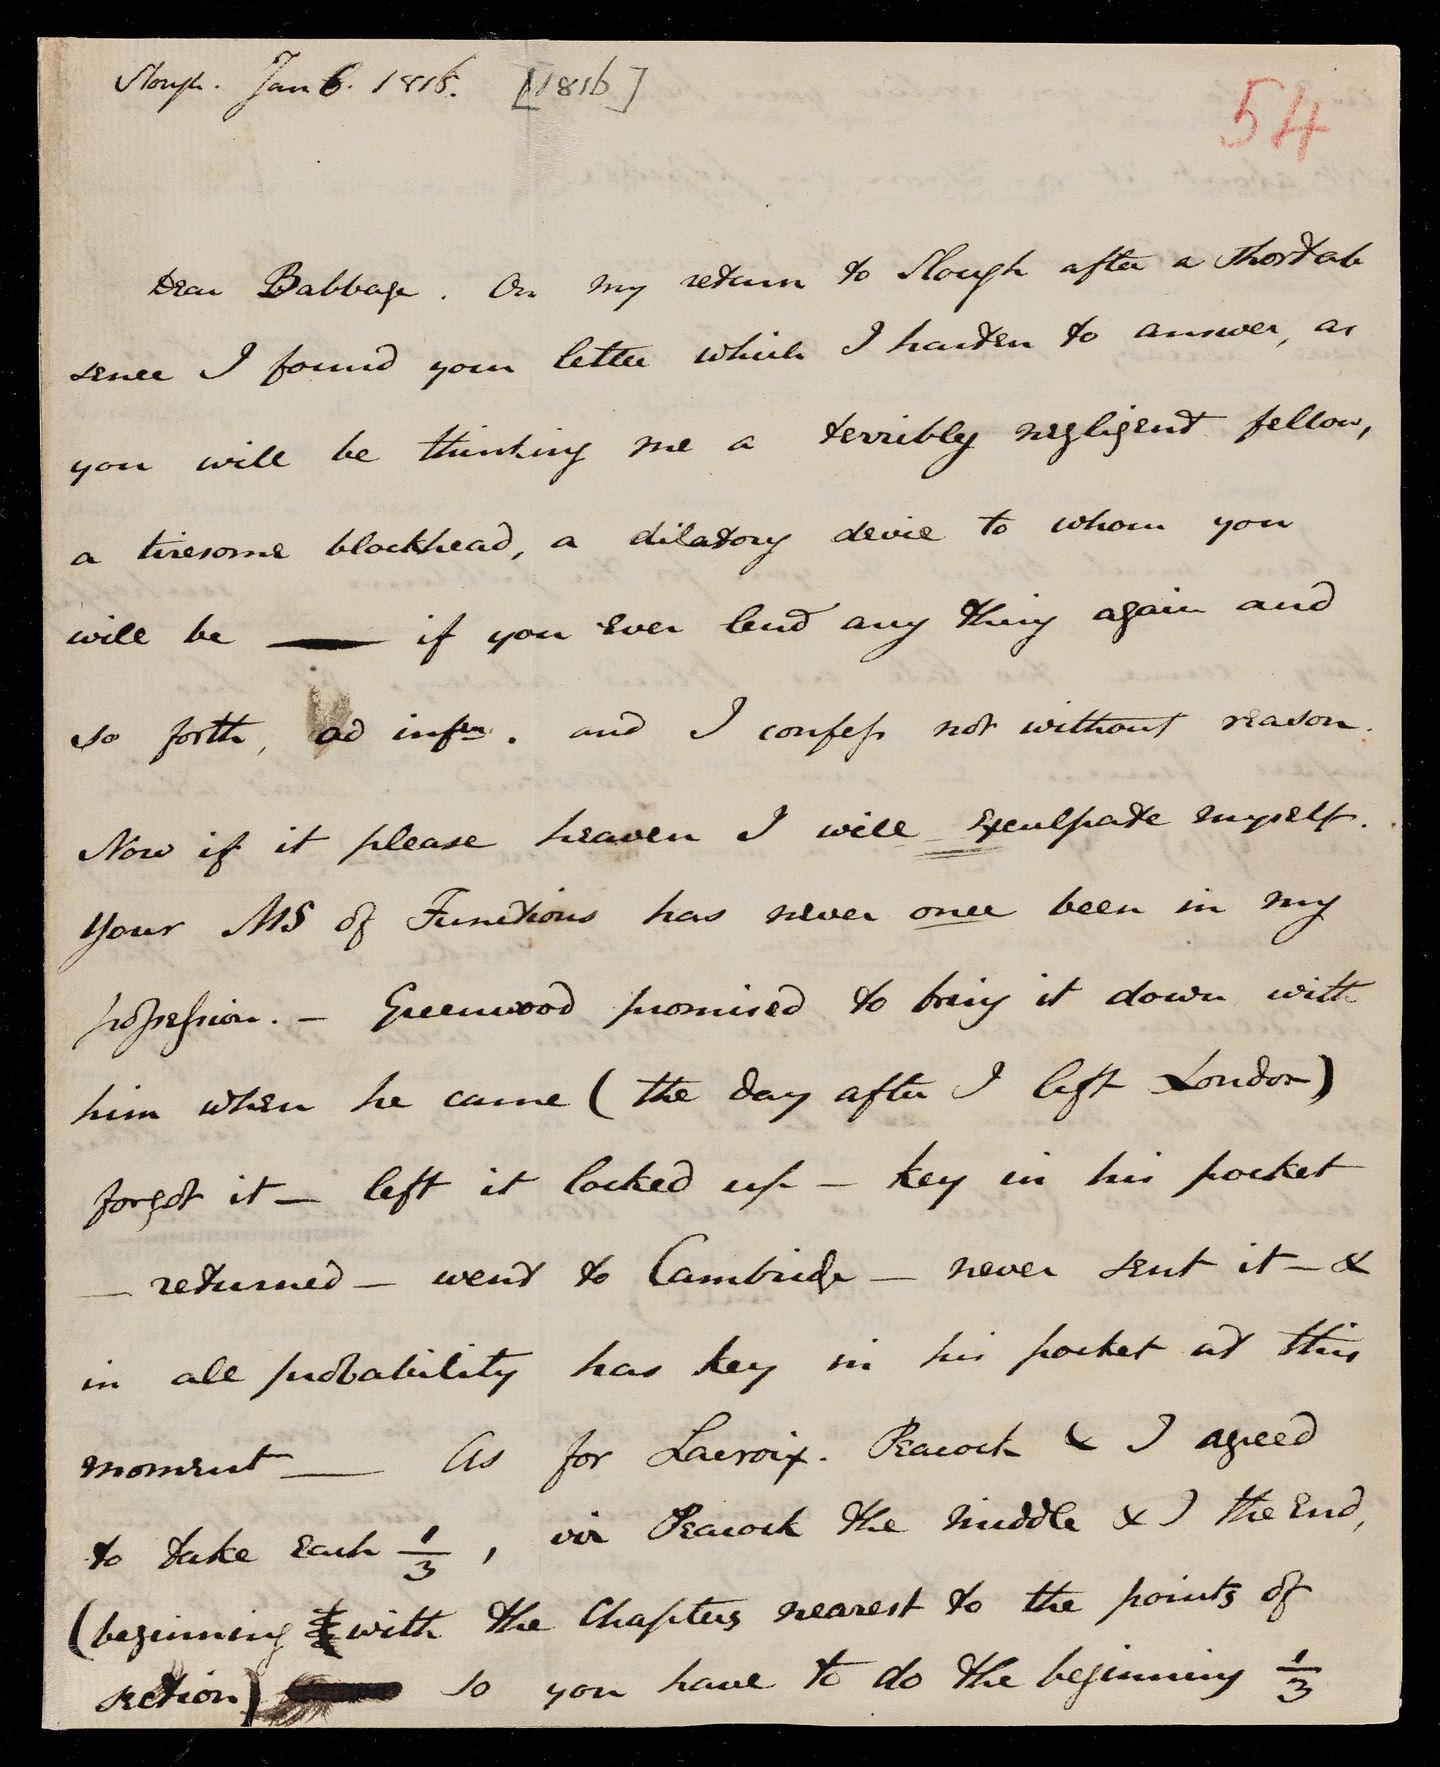 Slough. Jan 6. 1816. [1816]
54
Dear Babbage. On my return to Slough after a short ab
sence I found your letter which I hasten to answer, as
you will be thinking me a terribly negligent fellow,
a tiresome blockhead, a dilatory devil to whom you
will be —— if you ever lend any thing again and
so forth, ad infm. and I confess not without reason.
Now if it please heaven I will exculpate myself.
Your MS of Functions has never once been in my
possession. — Greenwood promised to bring it down with
him when he came (the day after I left London)
forgot it — left it locked up — key in his pocket
— returned — went to Cambridge — never sent it — &
in all probability has key in his pocket at this
moment — As for Lacroix. Peacock & I agreed
to take each 1/3, viz Peacock the middle & I the End,
(beginning with the Chapters nearest to the points of
section) so you have to do the beginning 1/3